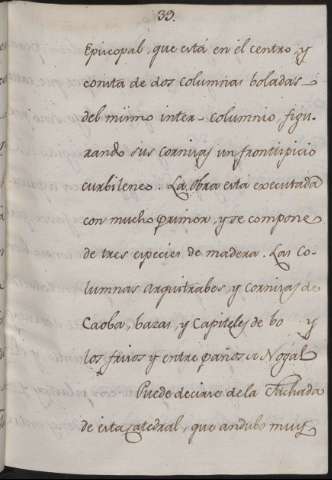 39.
Episcopal, que está en el centro, y
consta de dos columnas boladas
del mismo inter-columnio, figu-
rando sus cornisas un frontispicio
curbilineo. La obra está executada
con mucho primor, y se compone
de tres especies de madera. Las Co-
lumnas arquitrabes, y cornisas de
Caoba, bazas, y Capiteles de bo y
los frisos y entre paños de Nogal
Puede decirse de la Fachada
de esta catedral, que andubo muy